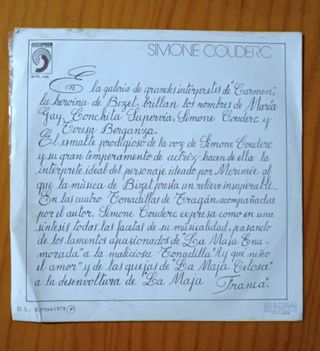 DISCOPHON
SIMONE COUDERC
En la galería de grandes intérpretes de "Carmen",
la heroína de Bizet, brillan los nombres de María
Gay, Conchita Supervía, Simone Couderc y
Teresa Berganza.
El esmalte prodigioso de la voz de Simone Couderc
y su gran temperamento de actriz, hacen de ella la
intérprete ideal del personaje ideado por Merimée al
que la música de Bizet presta un relieve insuperable.
En las cuatro Tonadillas de Tragán, acompañadas
por el autor, Simone Couderc expresa como en una
síntesis todas las facetas de su musicalidad, pasando
de los lamentos apasionados de "La Maja Ena-
morada" a la maliciosa Tonadilla "Ay que niño
el amor" y de las quejas de "La Maja Celosa"
a la desenvoltura de "La Maja Franca".
D. L.: B 1979 P